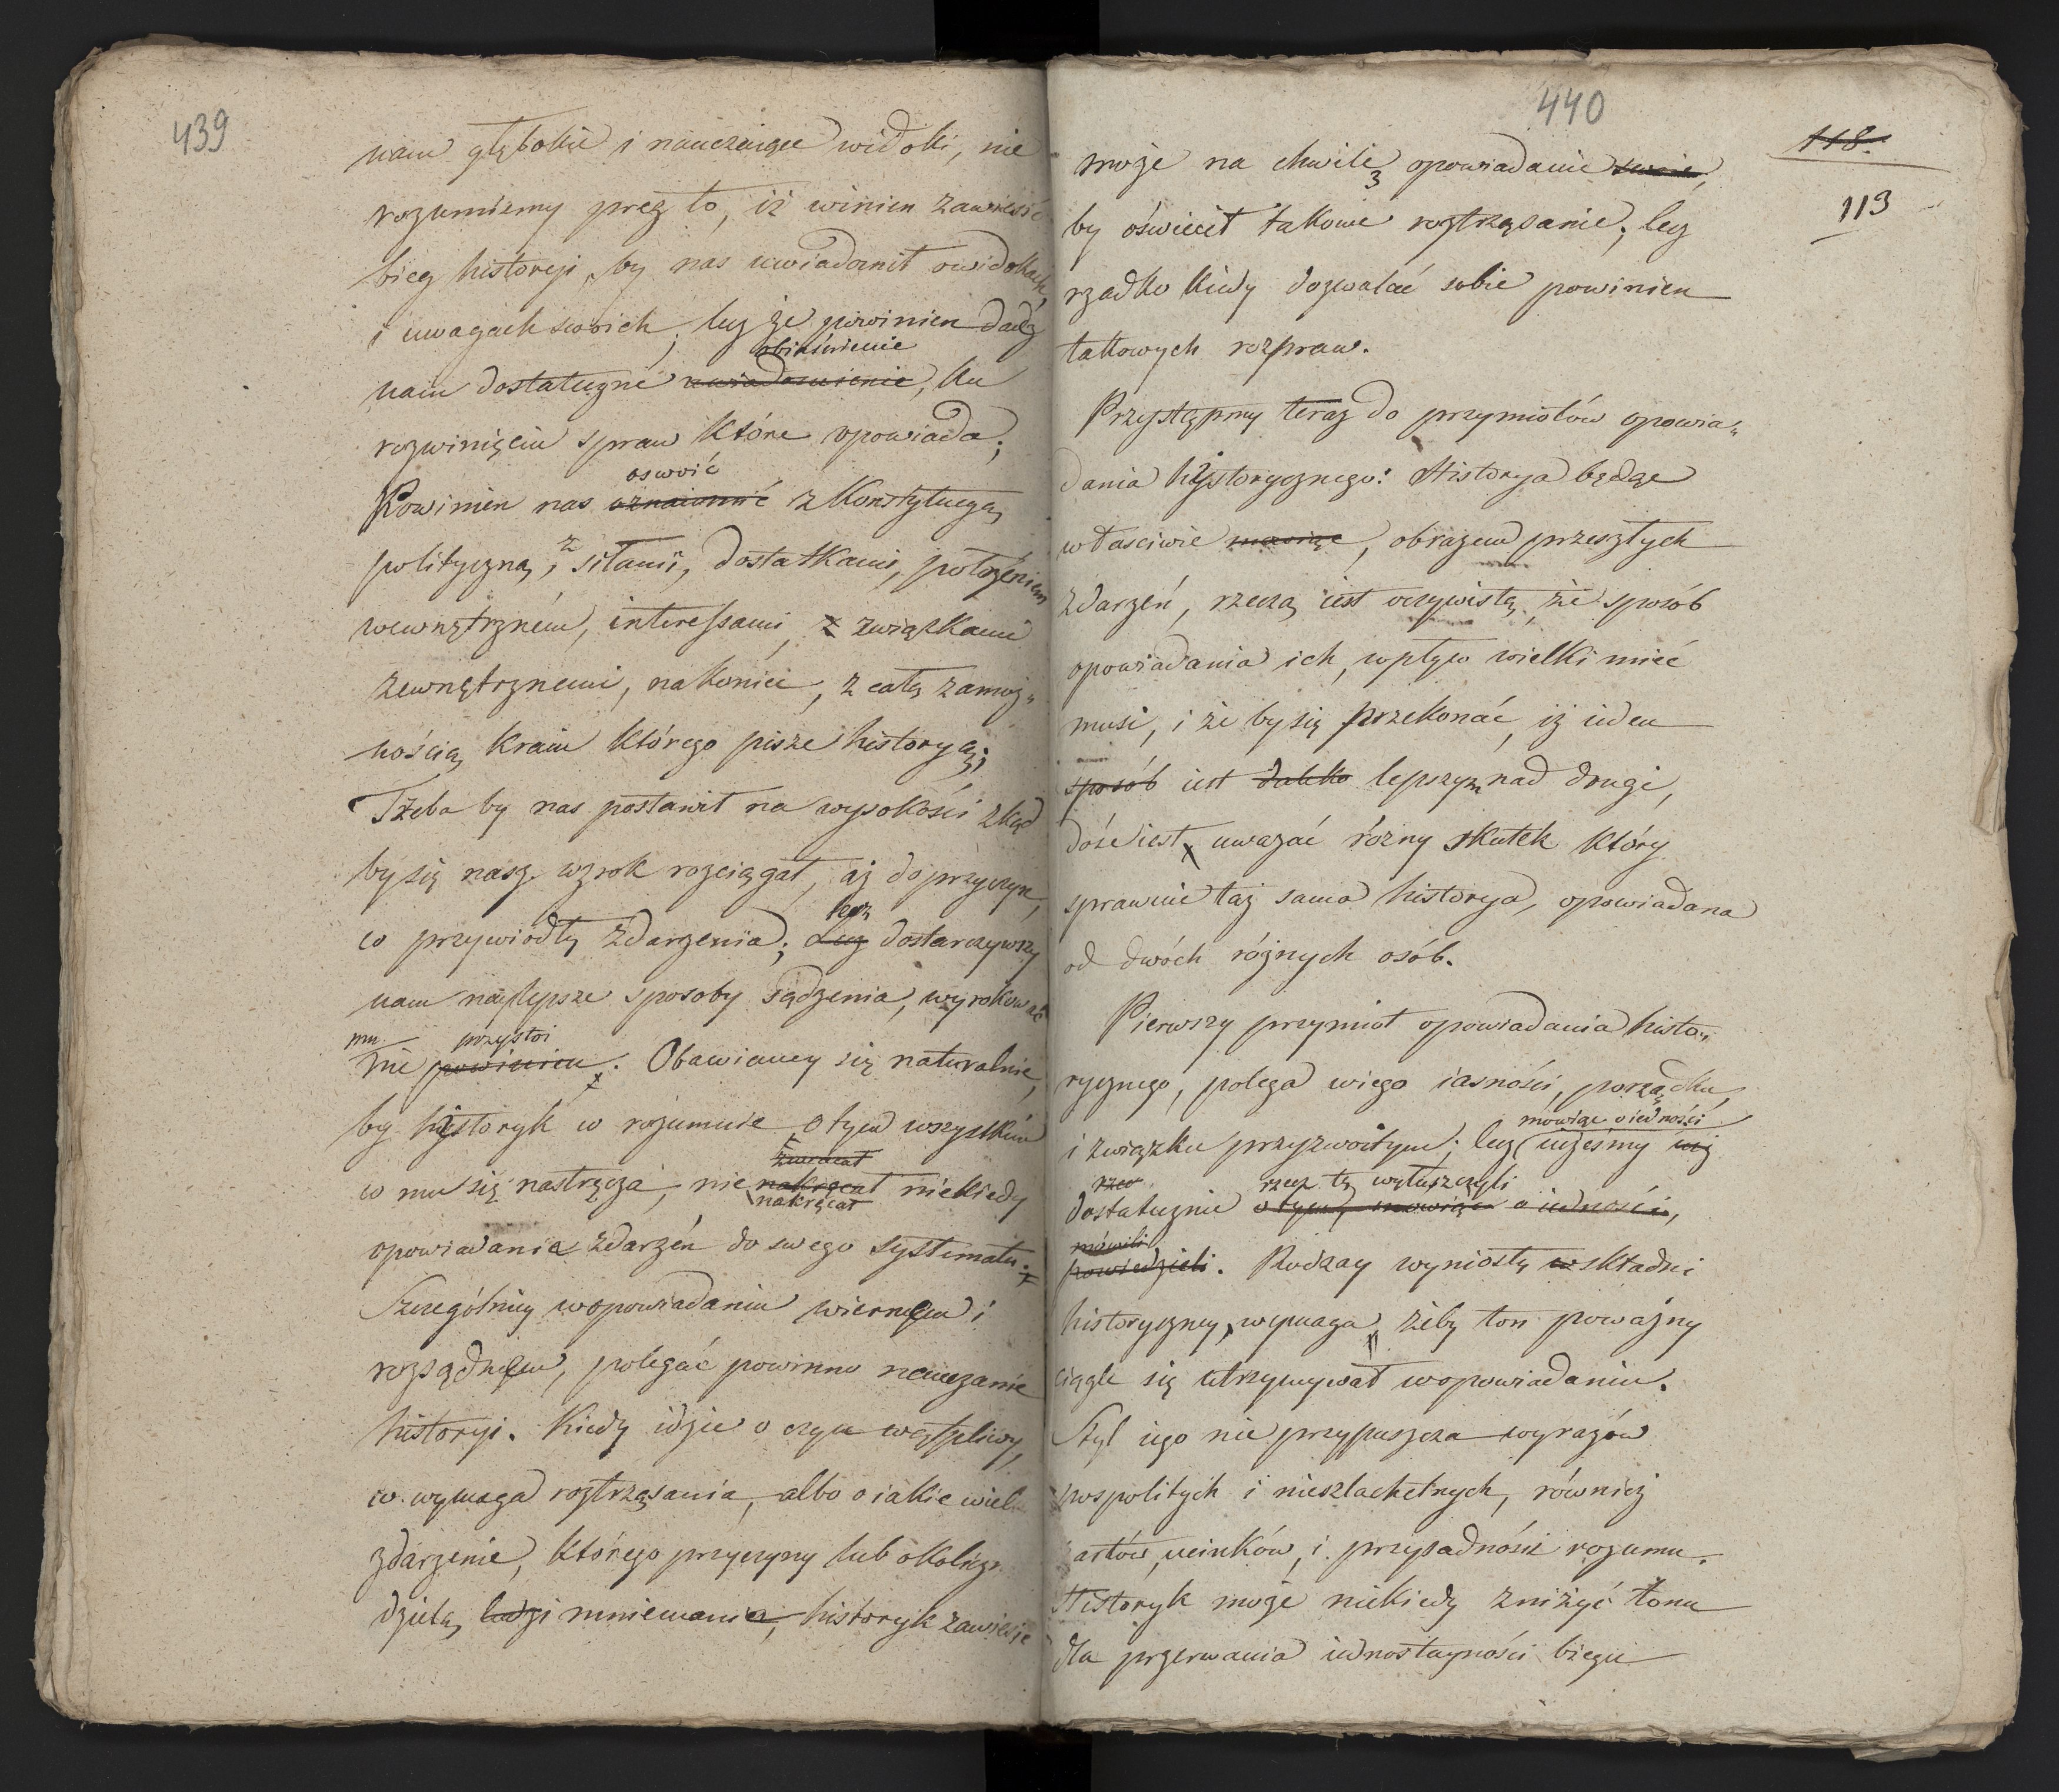 439
nam głębokie i nauczaiące widoki, nie
rozumiemy przez to, iż winien zawiesić
bieg historyi, by nas uwiadomił o widokach
i uwagach swoich; lecz że powinien dadź
obiaśnienie
nam dostateczne uwiadomienie, ku
rozwinięciu spraw które opowiada;
oswoić
Powinien nas oznaiomić z Konstytucyą
polityczną, z siłami, dostatkami, położeniem
wewnętrzném, interessami, z związkami
zewnętrznemi, nakoniec, z całą zamoż„
nością kraiu którego pisze historyą;
Trzeba by nas postawił na wysokości zkąd
by się nasz wzrok rozciągał, aż do przyczyn,
lecz
co przywiodły zdarzenia; Lecz dostarczywszy
nam najlepsze sposoby sądzenia, wyrokować
mu przystoi
nie powinien. Obawiamy się naturalnie,
by historyk w rozumuie o tym wszystkim
zwracał
co mu się nastręcza, nie nakręcał niekiedy
nakręcał
opowiadania zdarzeń do swego systematu.
Szczególniey w opowiadaniu wiernem i
rozsądnem, polegać powinno nauczanie
historyi. Kiedy idzie o czyn wątpliwy,
co wymaga roztrząsania, albo o iakie wielkie
zdarzenie, którego przyczyny lub okolicz.
dzielą ludzi mniemania, historyk zawiesić
440
118.
113
może na chwile opowiadanie swoie,
by oświecił takowe roztrząsanie; lecz
rzadko kiedy dozwalać sobie powinien
takowych rozpraw.
Przystąpmy teraz do przymiotów opowia„
dania historycznego: Historya będąc
właściwie mowiąc, obrazem przeszłych
zdarzeń, rzeczą iest oczywistą, że sposób
opowiadania ich, wpływ wielki mieć
musi, i że by się przekonać, iż ieden
sposób iest daleko lepszym nad drugi,
dość iest, uważać różny skutek który
sprawuie taż sama historya, opowiadana
od dwóch różnych osób.
Pierwszy przymiot opowiadania histo„
rycznego, polega w iego iasności, porządku,
mówiąc o iedności
i związku przyzwoitym; lecz uześmy iuż
rzecz rzecz tę wytłuszczyli
dostatecznie o tym mowiąc o iedności,
mówili
powiedzieli. Rodzay wyniosły w składni
historyczney, wymaga, żeby ton poważny
ciągle się utrzymywał w opowiadaniu.
Styl iego nie przypuszcza wyrazów
pospolitych i nieszlachetnych, również
żartów, ucinków, i przysadności rozumu.
Historyk może niekiedy zniżyć tonu
dla przerwania iednostayności biegu